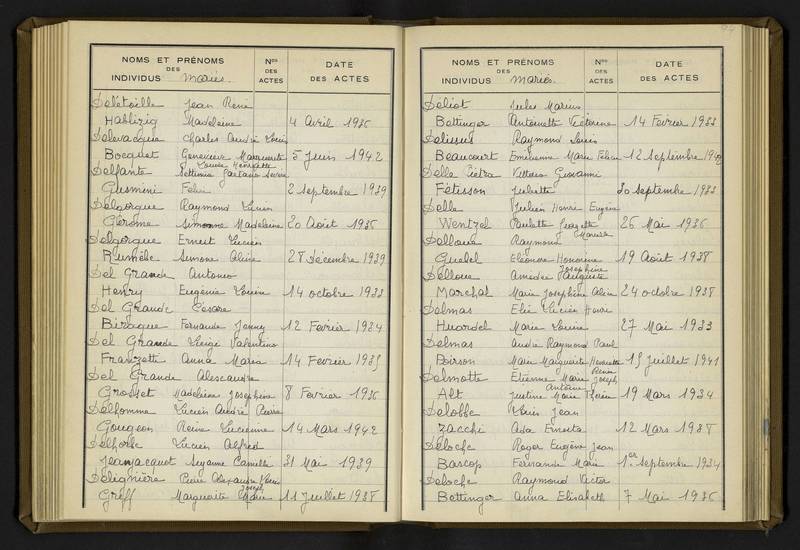 NOMS ET PRÉNOMS
DES
INDIVIDUS mariés.
Nos DES ACTES
DATE DES ACTES
Delétoille Jean René
Hablizig Madeleine 4 Avril 1936
Delevacque Charles André Louis
Bocquet Geneviève Marguerite 5 Juin 1942
Louise Henriette
Delfante Settimia Gaetano Severe
Gusmini 2 Septembre 1939
Delgorgue Raymond Lucien
Gérome Simonne Madeleine 20 Août 1936
Delgorgue Ernest Lucien
Rumèbe Simone Alice 28 Décembre 1939
Del Grande Antonio
Henry Eugénie Louise 14 octobre 1933
Del Grande Césare
Biraque Fernande Jenny 12 Fevrier 1934
Del Grande Luigi Valentino
Franzetti Anna Maria 14 Fevrier 1935
Del Grande Alexandre
Grosset Madeleine Josephine 8 Fevrier 1936
Delhomme Lucien André Pierre
Gougeon Reine Lucienne 14 Mars 1942
Delhorbe Lucien Alfred
Jeanjacquot Suzanne Camille 31 Mai 1939
Deligniére Pierre Alexandre Louis
Joseph
Greff Marguerite Marie 11 Juillet 1938
94
NOMS ET PRÉNOMS
DES
INDIVIDUS mariés.
Nos DES ACTES
DATE DES ACTES
Deliot Jules Marius
Bettinger Antoinette Victorine 14 Fevrier 1933
Delissus Raymond Louis
Beaucourt Emilienne Marie 12 Septembre
Delle Pietra Vittorio Giovanni
Fétisson Juliette 30 septembre 1933
Delle Julien Henri Eugène
Wentzel Paulette Georgette 26 Mai 1936
Dellaue Raymond
Guebel Eléonore Honorine 19 Août 1938
Josephine
Delloue Amedée Auguste
Marchal Marie Josephine Aline 24 octobre 1938
Delmas Elie Lucien Henri
Huardel Marie Louise 27 Mai 1933
Delmas André Raymond Paul
Boirson Marie Marguerite Henriette 15 Juillet 1941
Delmotte Etienne Marie Joseph
Antoine
Alt Justine Marie Thérèse 19 Mars 1934
Delobbe Louis Jean
Zacchi Ada Ernesta 12 Mars 1938
Deloche Roger Eugène Jean
Bascop Fernande Marie 1er Septembre 1934
Deloche Raymond Victor
Bettinger Anna Elisabeth 7 Mai 1936